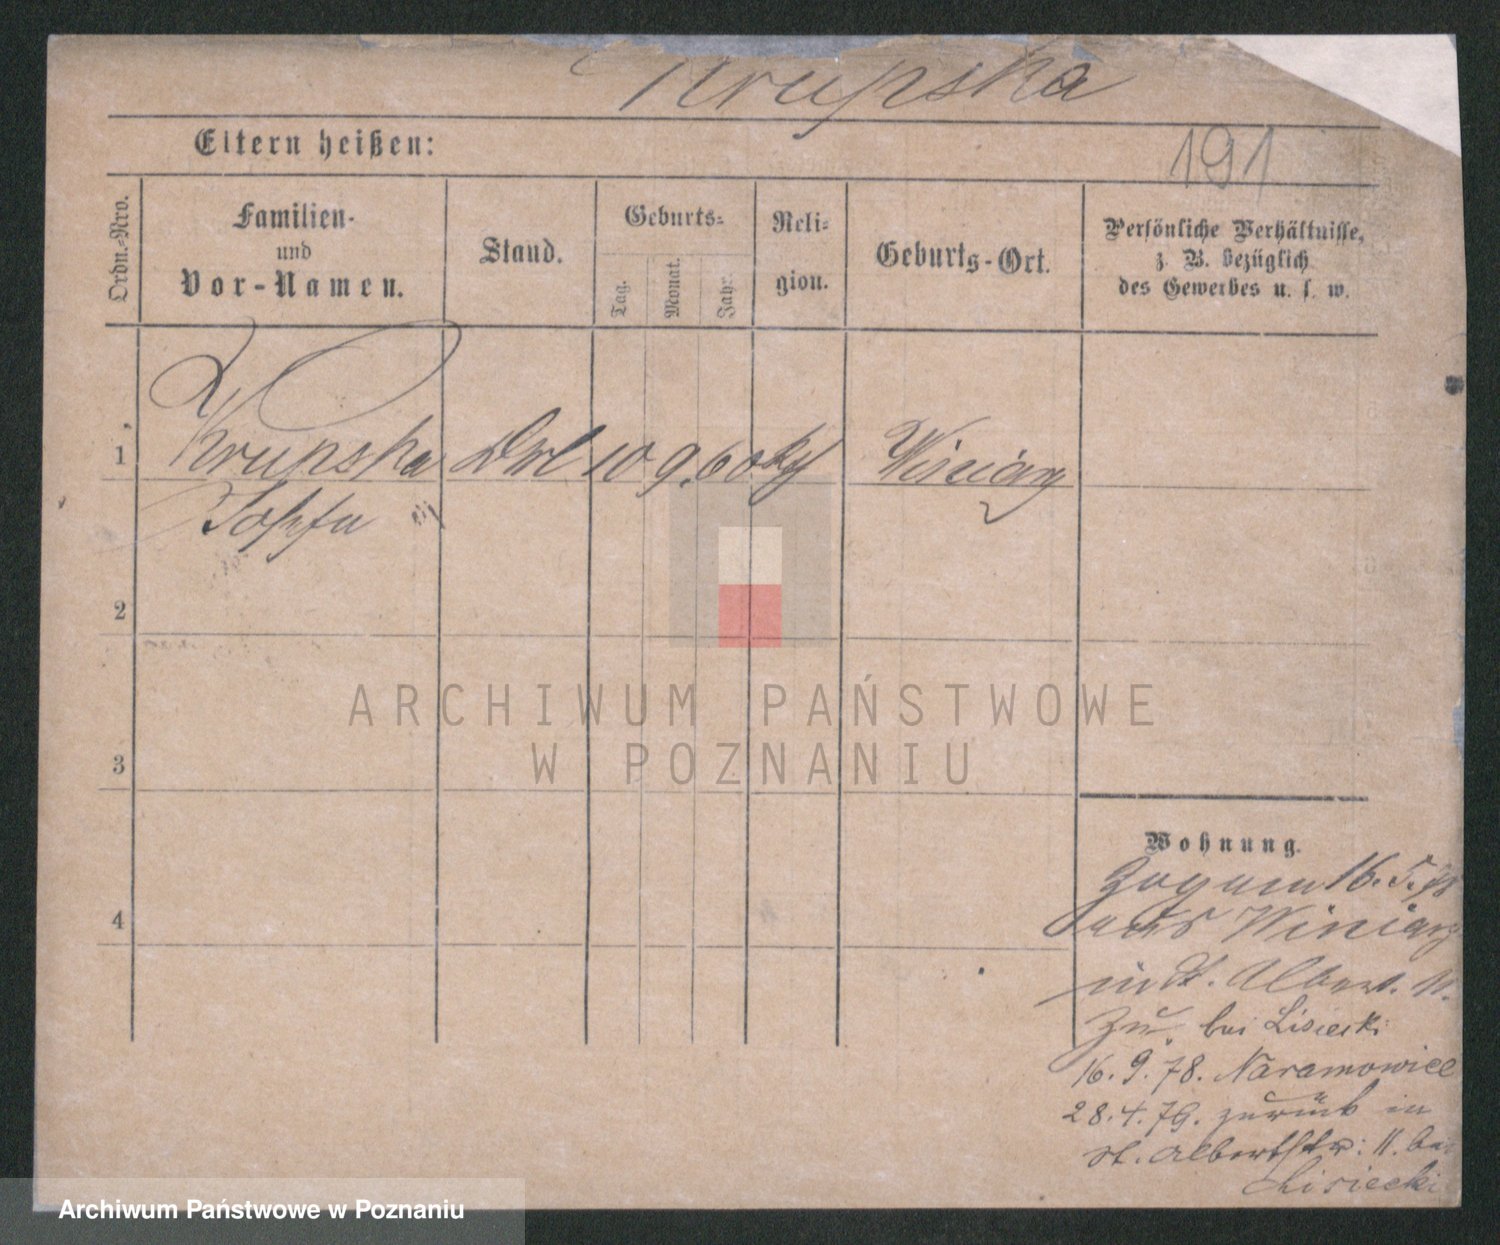 Krupska
191
Eltern heißen:
Ordn.-Nro.
Familien-
und
Vor-Namen.
Stand.
Geburts-
Tag.
Monat.
Jahr.
Reli-
gion.
Geburts-Ort.
Persönliche Verhältnisse,
z. B. bezüglich
des Gewerbes u. s. w.
1 Krupska 10 9. 60 Winiary
2
3
4
ARCHIWUM PAŃSTWOWE
W POZNANIU
Wohnung.
16. 5. 78
Winiary
in St. Albert. 11.
bei Lisiecki
16. 9. 78. Naramowice
28. 4. 79. zurück in
St. Albertstr: 11. bei
Lisiecki
Archiwum Państwowe w Poznaniu